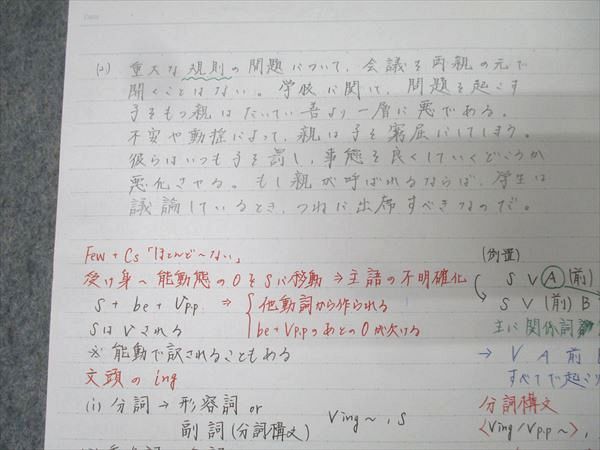 Date
(2) 重大な規則の問題について、会議を両親の元で
開くことはない。学校に関して、問題を起こす
子をもつ親はたいてい普より一層に悪である。
不安や動揺によって、親は子を窮屈にしてしまう。
彼らはいつも子を罰し、事態を良くしていくどころか
悪化させる。もし親が呼ばれるならば、学生は
議論しているとき、つねに出席すべきなのだ。
Few + Cs「ほとんど~ない」
受け身~能動態のOをSに移動⇒主語の不明確化
S + be + Vpp ⇒ { 他動詞から作られる
SはVされる be+VppのあとのOが欠ける
※能動で訳されることもある
文頭のing
(i) 分詞→形容詞 or
副詞(分詞構文) Ving~, S
(倒置)
S V A (前)
S V (前) B
主に関係詞
→ V A 前
すべてで起こ
分詞構文
<Ving/Vpp~>,